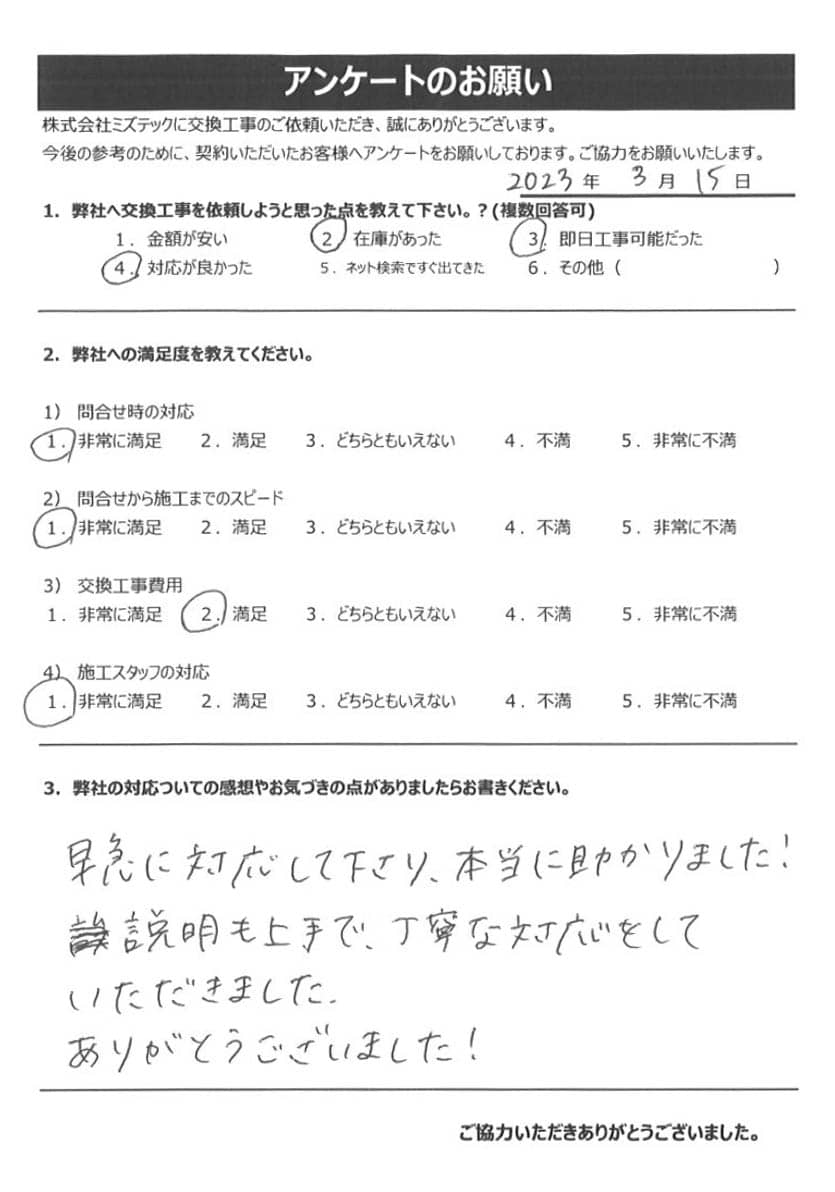 アンケートのお願い
株式会社ミズテックに交換工事のご依頼いただき、誠にありがとうございます。
今後の参考のために、契約いただいたお客様へアンケートをお願いしております。ご協力をお願いいたします。
2023 年 3 月 15 日
1. 弊社へ交換工事を依頼しようと思った点を教えて下さい。?(複数回答可)
1. 金額が安い 2. 在庫があった 3. 即日工事可能だった
4. 対応が良かった 5. ネット検索ですぐ出てきた 6. その他( )
2. 弊社への満足度を教えてください。
1) 問合せ時の対応
1. 非常に満足 2. 満足 3. どちらともいえない 4. 不満 5. 非常に不満
2) 問合せから施工までのスピード
1. 非常に満足 2. 満足 3. どちらともいえない 4. 不満 5. 非常に不満
3) 交換工事費用
1. 非常に満足 2. 満足 3. どちらともいえない 4. 不満 5. 非常に不満
4) 施工スタッフの対応
1. 非常に満足 2. 満足 3. どちらともいえない 4. 不満 5. 非常に不満
3. 弊社の対応ついての感想やお気づきの点がありましたらお書きください。
早急に対応して下さり、本当に助かりました!
説明も上手で、丁寧な対応をして
いただきました.
ありがとうございました!
ご協力いただきありがとうございました。